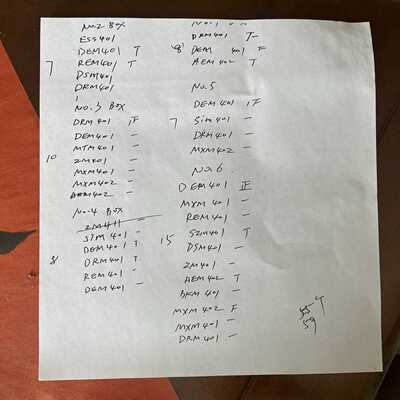 No.2 Box
ESS401
DEM401 T
7 REM401 T
DSM401
DRM401
No.3 Box
DRM401 正
DEM401 一
MTM401 一
10 ZM401 一
MXM401 一
MXM402 一
AEM402 一
No.4 Box
SIM401 一
DEM401 T
8 DRM401 T
REM401 一
DSM401 一
DRM401 T
8 DEM401 F
AEM402 T
No.5
DEM401 F
7 SIM401 一
DRM401 一
MXM402 一
No.6
DEM401 正
MXM401 一
REM401 一
SZM401 T
15 DSM401 一
ZM401 一
AEM402 T
BKM401 一
MXM402 F
MXM401 一
DRM401 一
59